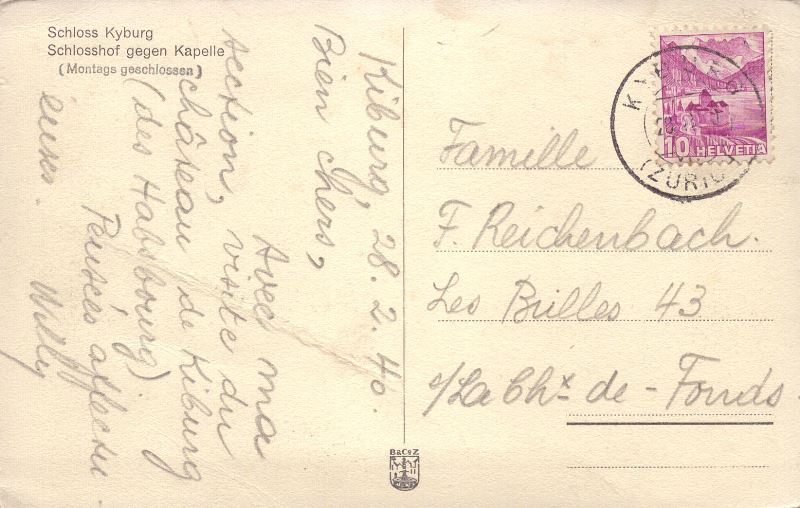 Schloss Kyburg
Schlosshof gegen Kapelle
(Montags geschlossen)
Kiburg, 28.2.40.
Bien chers,
Avec ma
section, visite du
château de Kiburg
(des Habsbourg)
Pensées affectu-
euses.
Willy
10 HELVETIA
KYBURG
(ZÜRICH)
Famille
F. Reichenbach.
Les Bulles 43
s/La Chx-de-Fonds.
B&CoZ